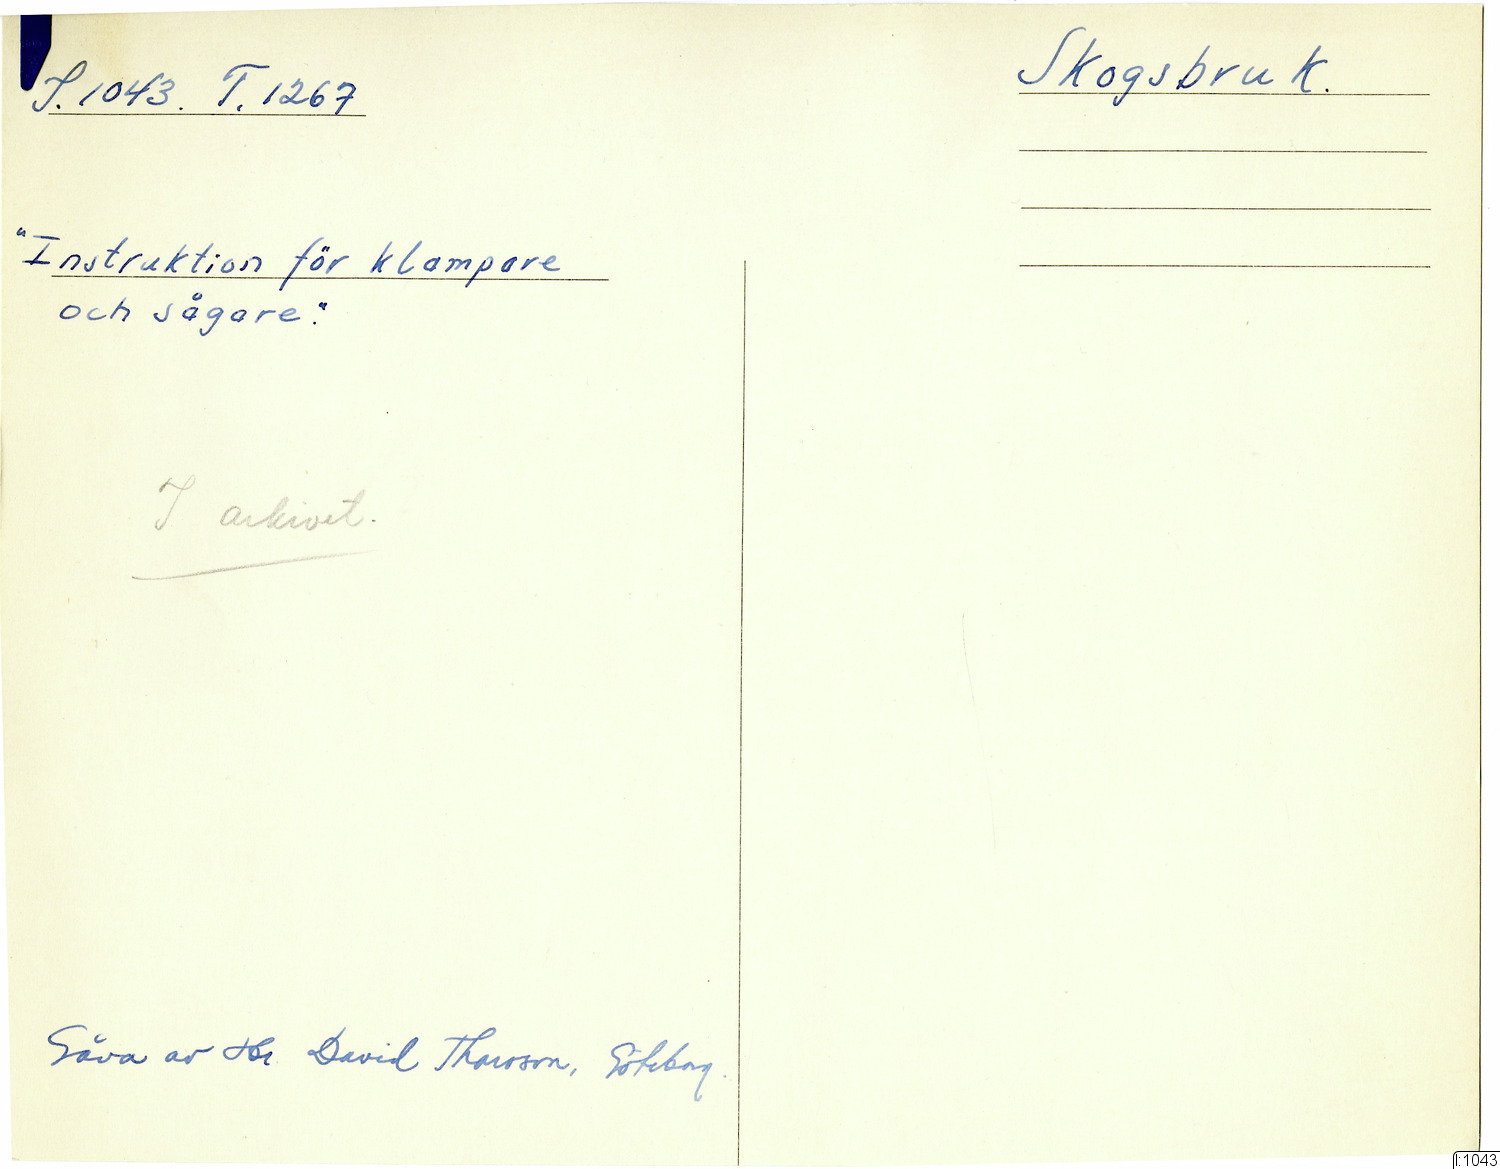 I.1043. T.1267
Skogsbruk.
"Instruktion för klampare
och sågare."
I arkivet.
Gåva av Hr. David Thorsson, Göteborg.
I:1043